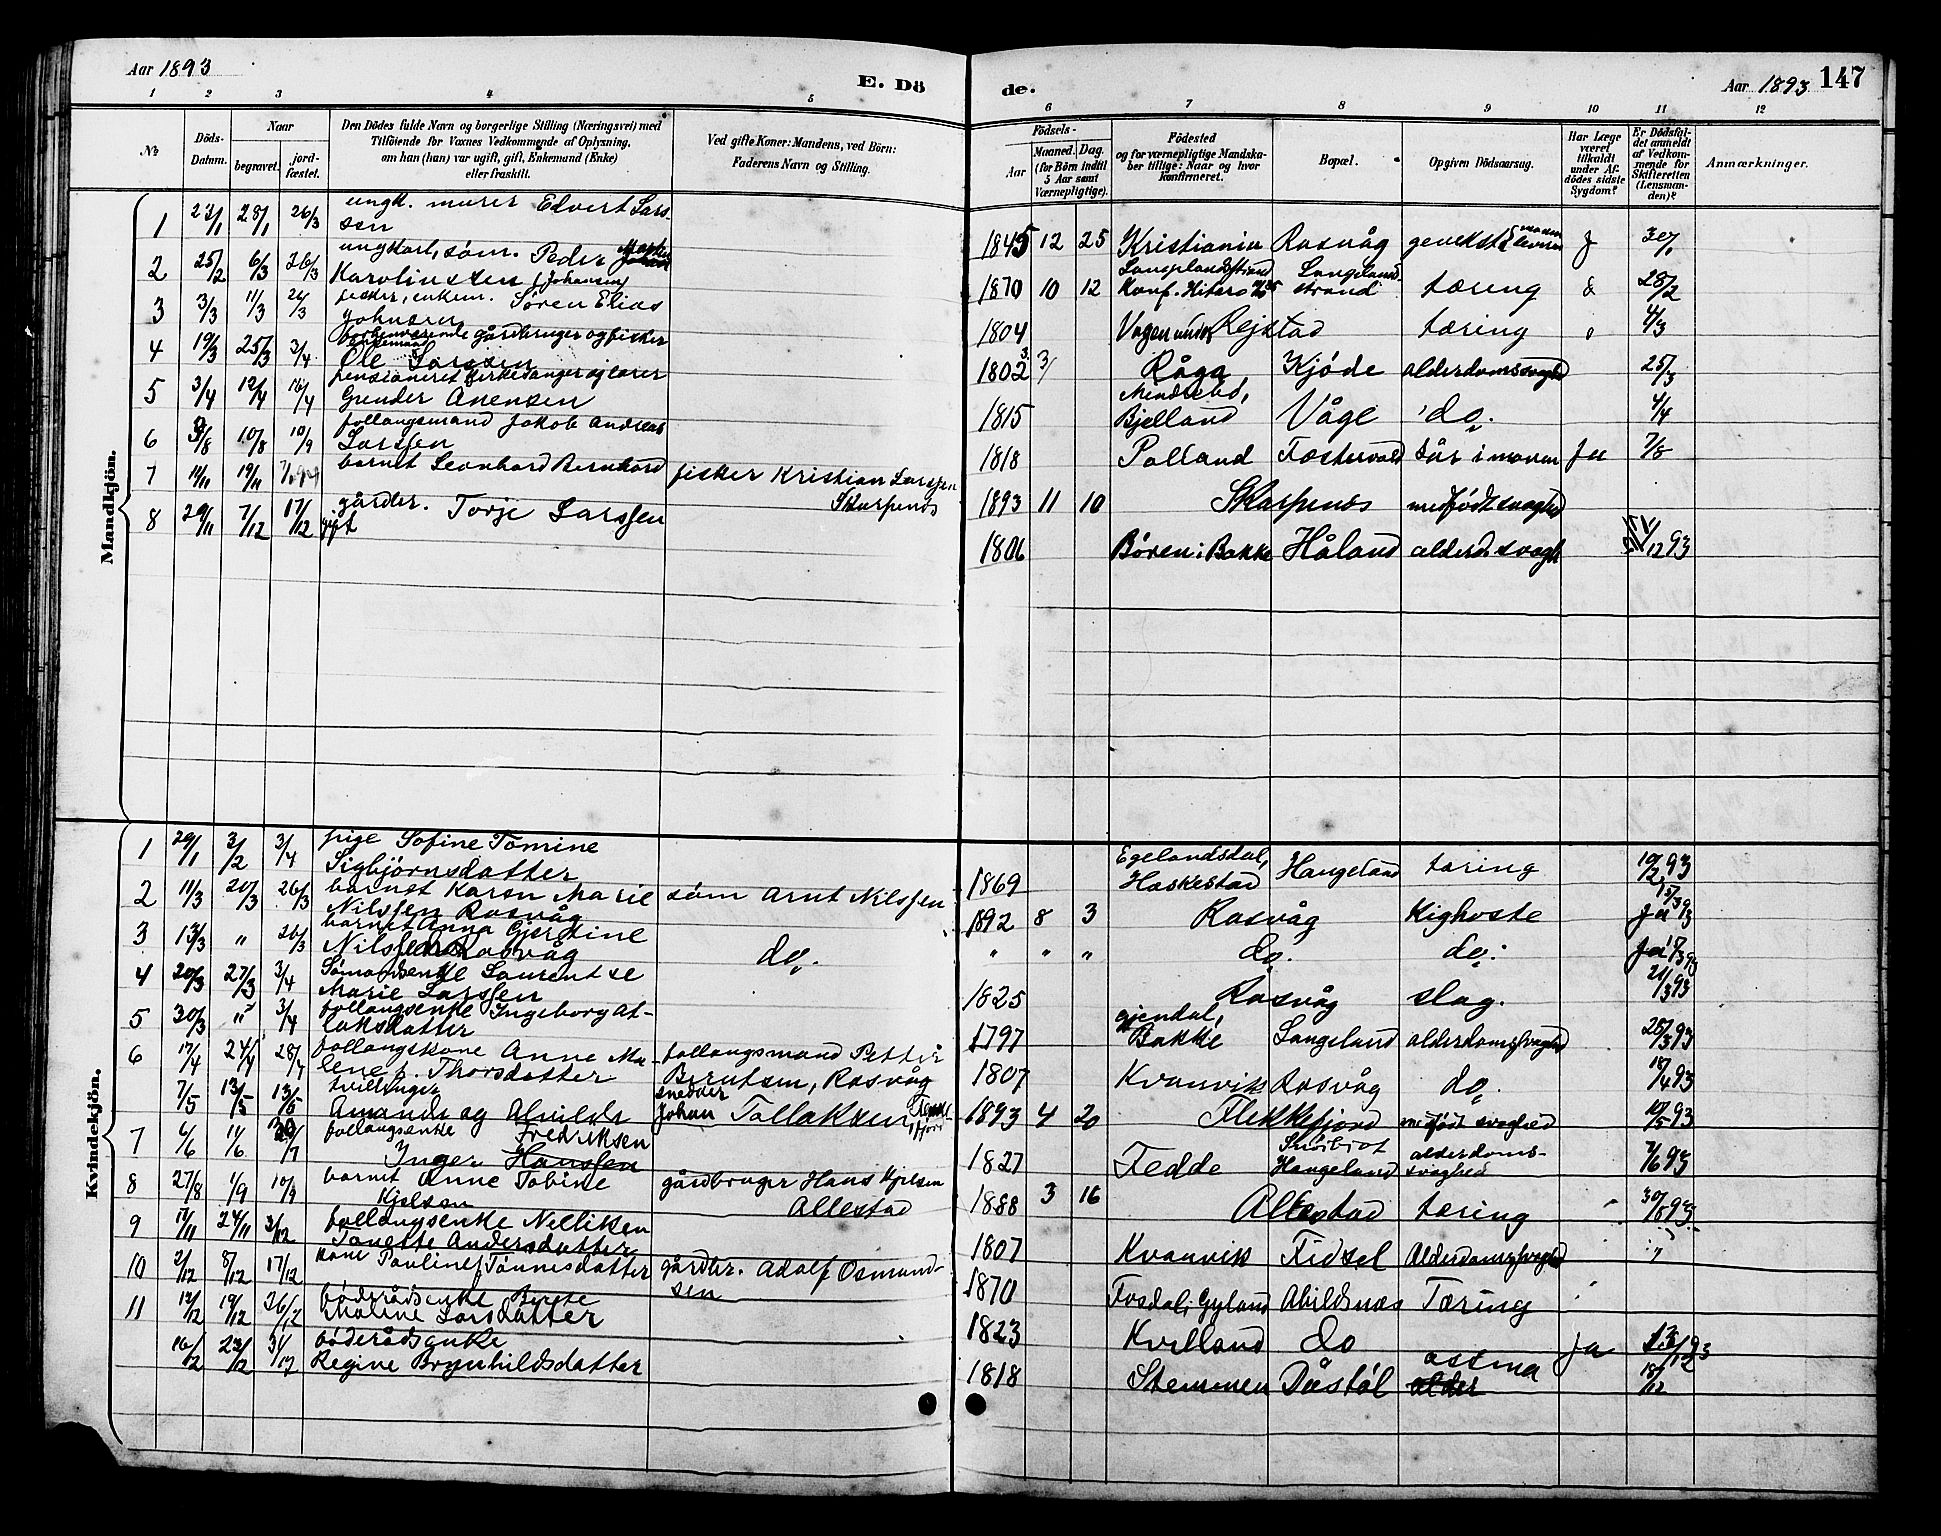 Aar 1893
E. Dö
de.
Aar 1893
147
1 2 3 4 5 6 7 8 9 10 11 12
№
Döds-
Datum.
Naar
begravet.
jord-
fæstet.
Den Dödes fulde Navn og borgerlige Stilling (Næringsvei) med
Tilföiende for Voxnes Vedkommende af Oplysning,
om han (han) var ugift, gift, Enkemand (Enke)
eller fraskilt.
Ved gifte Koner: Mandens, ved Börn:
Faderens Navn og Stilling.
Födsels-
Aar
Maaned. Dag.
(for Börn indtil
5 Aar samt
Værnepligtige).
Födested
og for værnepligtige Mandska-
ber tillige: Naar og hvor
konfirmeret.
Bopæl.
Opgiven Dödsaarsag.
Har Læge
været
tilkaldt
under Af-
dödes sidste
Sygdom?
Er Dödsfal-
det anmeldt
af Vedkom-
mende for
Skifteretten
(Lensman-
den)?
Anmærkninger.
Mandkjön.
1 23/1 28/1 26/3 ungk. murer Edvert Lars-
sen 1845 12 25 Kristiania Rasvåg 30/1
2 25/2 6/3 26/3 ungkarl, søm. Peder
Karolinsten (Johansen) 1870 10 12 Langelands strand tæring 28/2
3 3/3 11/3 26/3 fisker, enkem. Søren Elias
Johnsen 1804 Vågen under Rejstad tæring 4/3
4 19/3 25/3 3/4 forhenværende gårdbruger og fisker
enkemand
Ole Larssen 1802 Råga Kjøde alderdomssvaghed 25/3
5 3/4 12/4 16/4 pensioneret kirkesanger og lærer
Gunder Anensen 1815 Bjelland Våge do. 4/4
6 3/8 10/8 10/9 follaugsmand Jakob Andreas
Larssen 1818 Polland Fæstervold Sår i maven Ja 7/8
7 14/11 19/11 barnet Leonhard Bernhard fisker Kristian Larssen
Skarpenes 1893 11 10 Skarpenes medfødt svaghed
8 29/11 7/12 17/12 gårdbr. Torje Larssen
gift 1806 Børen i Bakke Håland alderd. svagh 12 93
Kvindekjön.
1 29/1 3/2 3/4 pige Sofine Tomine
Sigbjørnsdatter 1869 Egelandsdal,
Haskestad Haugeland tæring 10/2 93
2 11/3 20/3 26/3 barnet Karen Marie søm Arnt Nilssen
Nilssen Rasvåg 1892 8 3 Rasvåg Kighoste Ja
3 13/3 " 26/3 barnet Anna Gjerdine
Nilssen Rasvåg do. " " " do. do. Ja
4 20/3 27/3 3/4 Sømandsenke Laurentse
Marie Larssen 1825 Rasvåg slag. 21/3 93
5 30/3 " 3/4 follaugsenke Ingeborg At-
laksdatter 1797 Gjendal,
Bakke Langeland alderdomssvaghed 25/3 93
6 17/4 24/4 28/4 follaugskone Anne Ma- follaugsmand Petter
lene f. Thorsdatter Berntsen, Rasvåg 1807 Kvanvik Rasvåg do. 18/4 93
7/5 13/5 13/5 tvillinger snedker
Amanda og Alvilde Johan Tollaksen 1893 4 20 Flekkefjord medfødt svaghed 10/5 93
7 4/6 11/6 follaugsenke Fredriksen
Inger Hanssen 1827 Fedde Haugeland alderdoms-
svaghed 7/6 93
8 27/8 1/9 10/9 barnet Anne Tobine gårdbruger Hans Kjelsen
Kjelsen Allestad 1888 3 16 Allestad tæring 30/8 93
9 17/11 24/11 3/12 follaugsenke Nilliken
Tonette Andersdatter 1807 Kvanvik Fidsel Alderdomssvaghed
10 2/12 8/12 17/12 kone Pauline f. Tønnesdatter gårdbr. Adolf Osmund-
sen 1870 Fosdal, Gyland Abildsnæs Tæring
11 12/12 19/12 26/12 føderådsenke Berete
Maline Larsdatter 1823 Kvelland do Ja 12 93
16/12 23/12 føderådsenke
Regine Brynhildsdatter 1818 Stemmen Dåstøl astma
alder 18/12